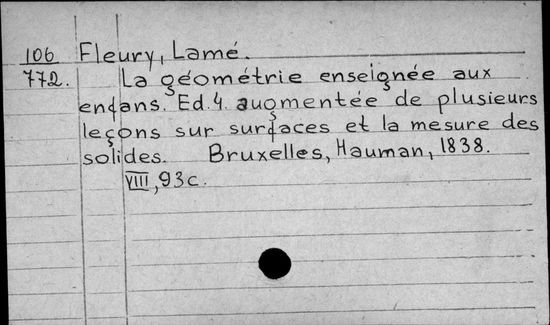 106 Fleury, Lamé.
772. La géométrie enseignée aux
enfans. Ed. 4. augmentée de plusieurs
leçons sur surfaces et la mesure des
solides. Bruxelles, Hauman, 1838.
VIII, 93 c.